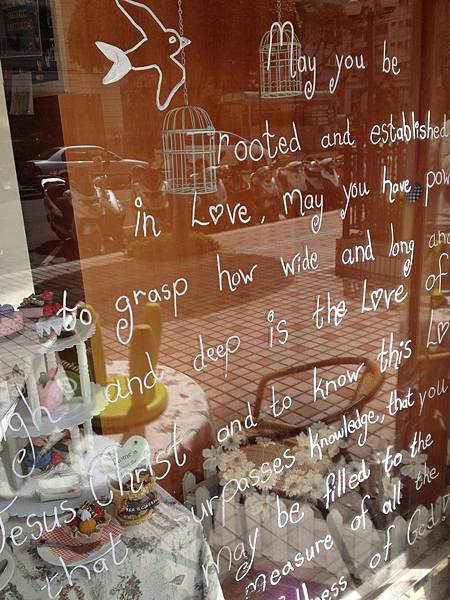 May you be
rooted and established
in Love, May you have pow
to grasp how wide and long and
gh and deep is the Love of
Jesus Christ and to know this Lo
that surpasses knowledge, that you
may be filled to the
measure of all the
llness of God!